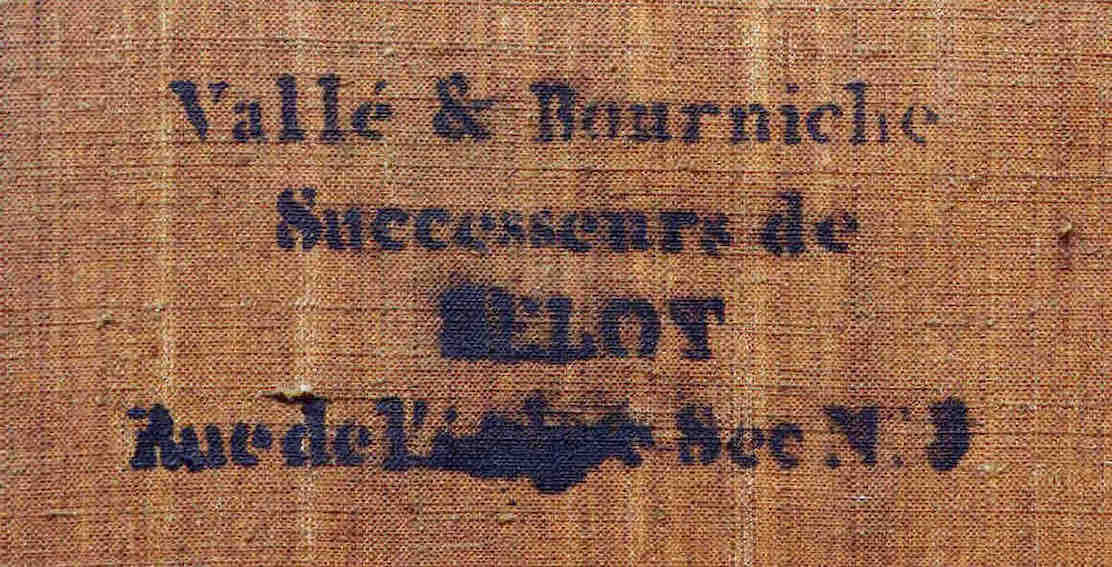 Vallé & Bourniche
Successeurs de
BELOT
Rue de l'Arbre Sec N.